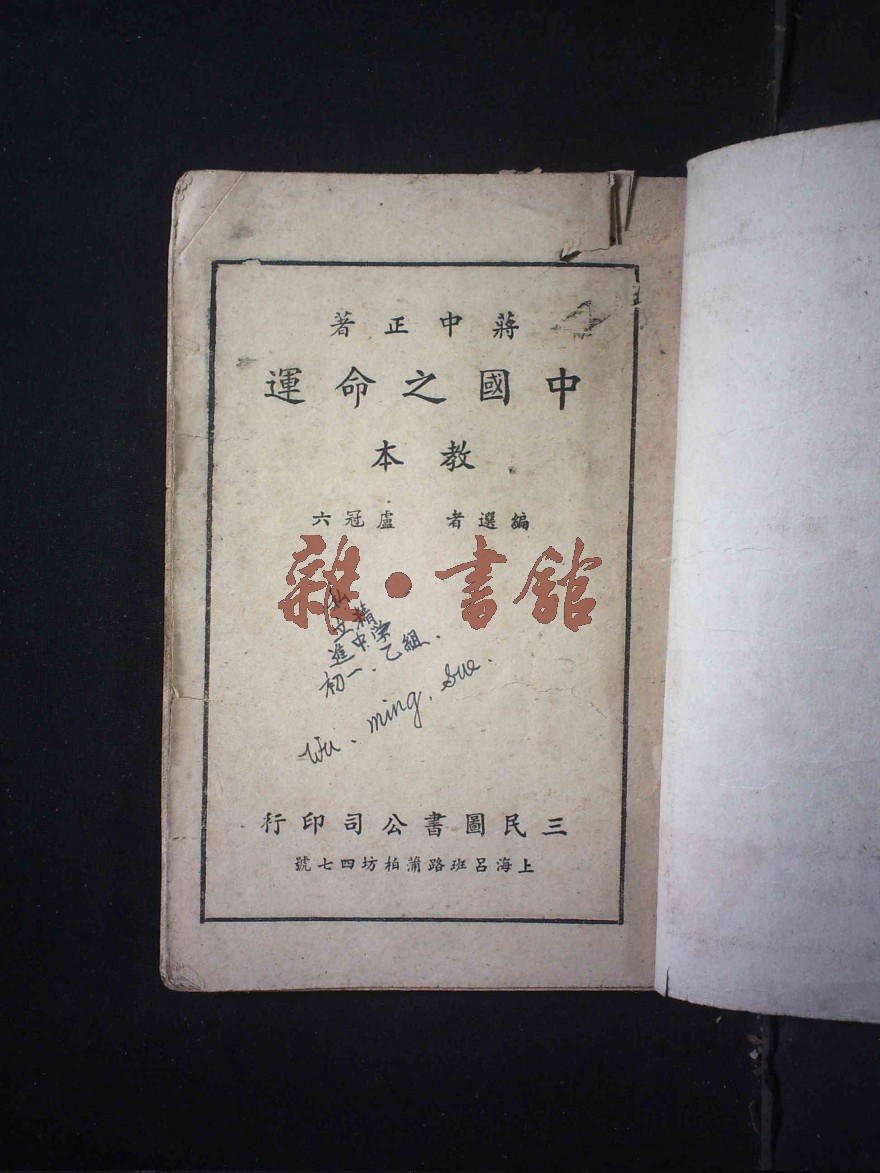 蔣中正著
中國之命運
教本
編選者 盧冠六
雜·書館
私立精
進中学
初一.乙組.
Wu. ming. Sue.
三民圖書公司印行
上海呂班路蒲柏坊四七號